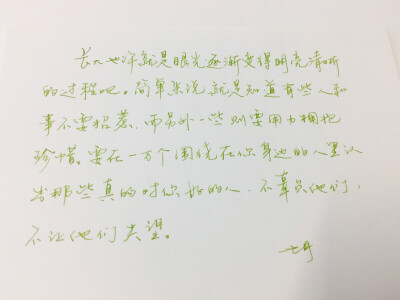 长大也许就是眼光逐渐变得明亮清晰
的过程吧。简单来说,就是知道有些人和
事不要招惹,而另外一些则要用力拥抱
珍惜。要在一万个围绕在你身边的人里认
出那些真的对你好的人,不辜负他们,
不让他们失望。